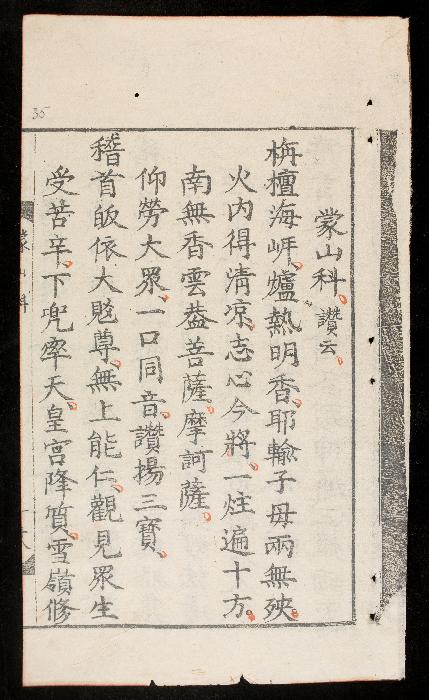 蒙山科讚云
栴檀海岍爐熱明香耶輸子毋兩無殃
火內得清凉志心今將一炷遍十方
南無香雲盖菩薩摩訶薩
仰勞大眾一口同音讚揚三寶
稽首皈依大覺尊無上能仁觀見眾生
受苦辛下兜率天皇宮降質雪嶺修
蒙山科
35